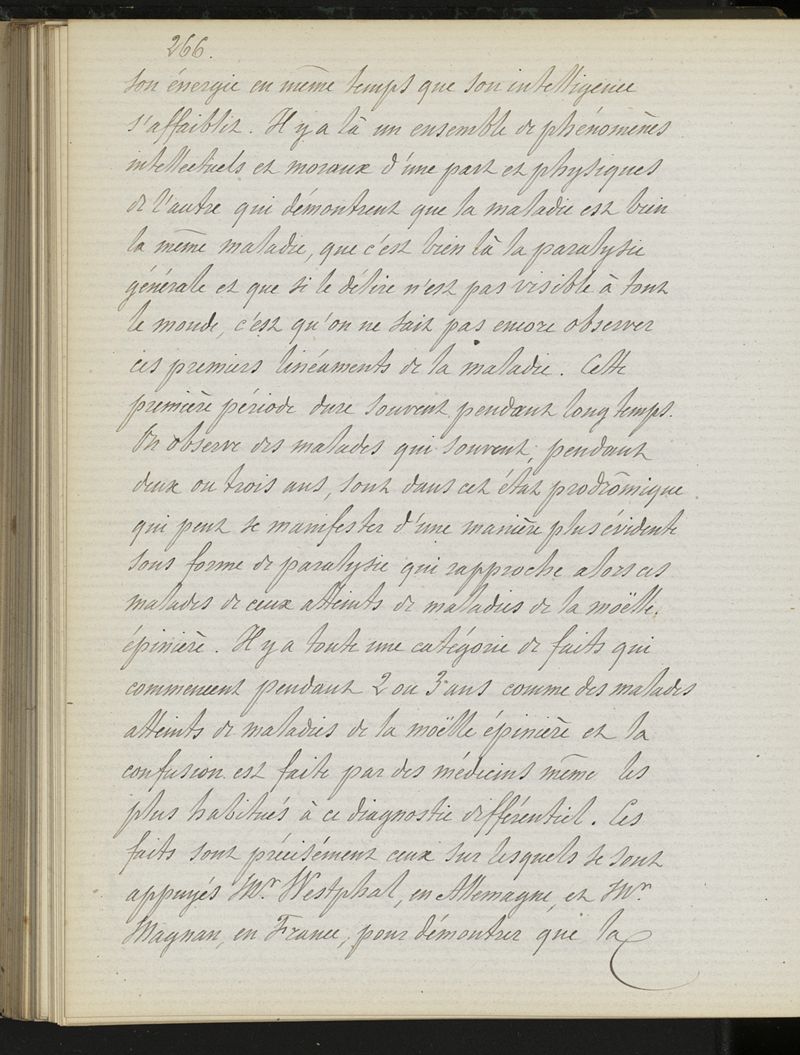 266.
son énergie en même temps que son intelligence
s'affaiblit. Il y a là un ensemble de phénomènes
intellectuels et moraux d'une part et physiques
de l'autre qui démontrent que la maladie est bien
la même maladie, que c'est bien là la paralysie
générale et que si le délire n'est pas visible à tout
le monde, c'est qu'on ne sait pas encore observer
ces premiers linéaments de la maladie. Cette
première période dure souvent pendant longtemps.
On observe des malades qui souvent, pendant
deux ou trois ans, sont dans cet état prodrômique
qui peut se manifester d'une manière plus évidente
sous forme de paralysie qui rapproche alors ces
malades de ceux atteints de maladies de la moëlle
épinière. Il y a toute une catégorie de faits qui
commencent pendant 2 ou 3 ans comme des malades
atteints de maladies de la moëlle épinière et la
confusion est faite par des médecins même les
plus habitués à ce diagnostic différentiel. Ces
faits sont précisément ceux sur lesquels se sont
appuyés Mr. Westphal, en Allemagne, et Mr.
Magnan, en France, pour démontrer que la